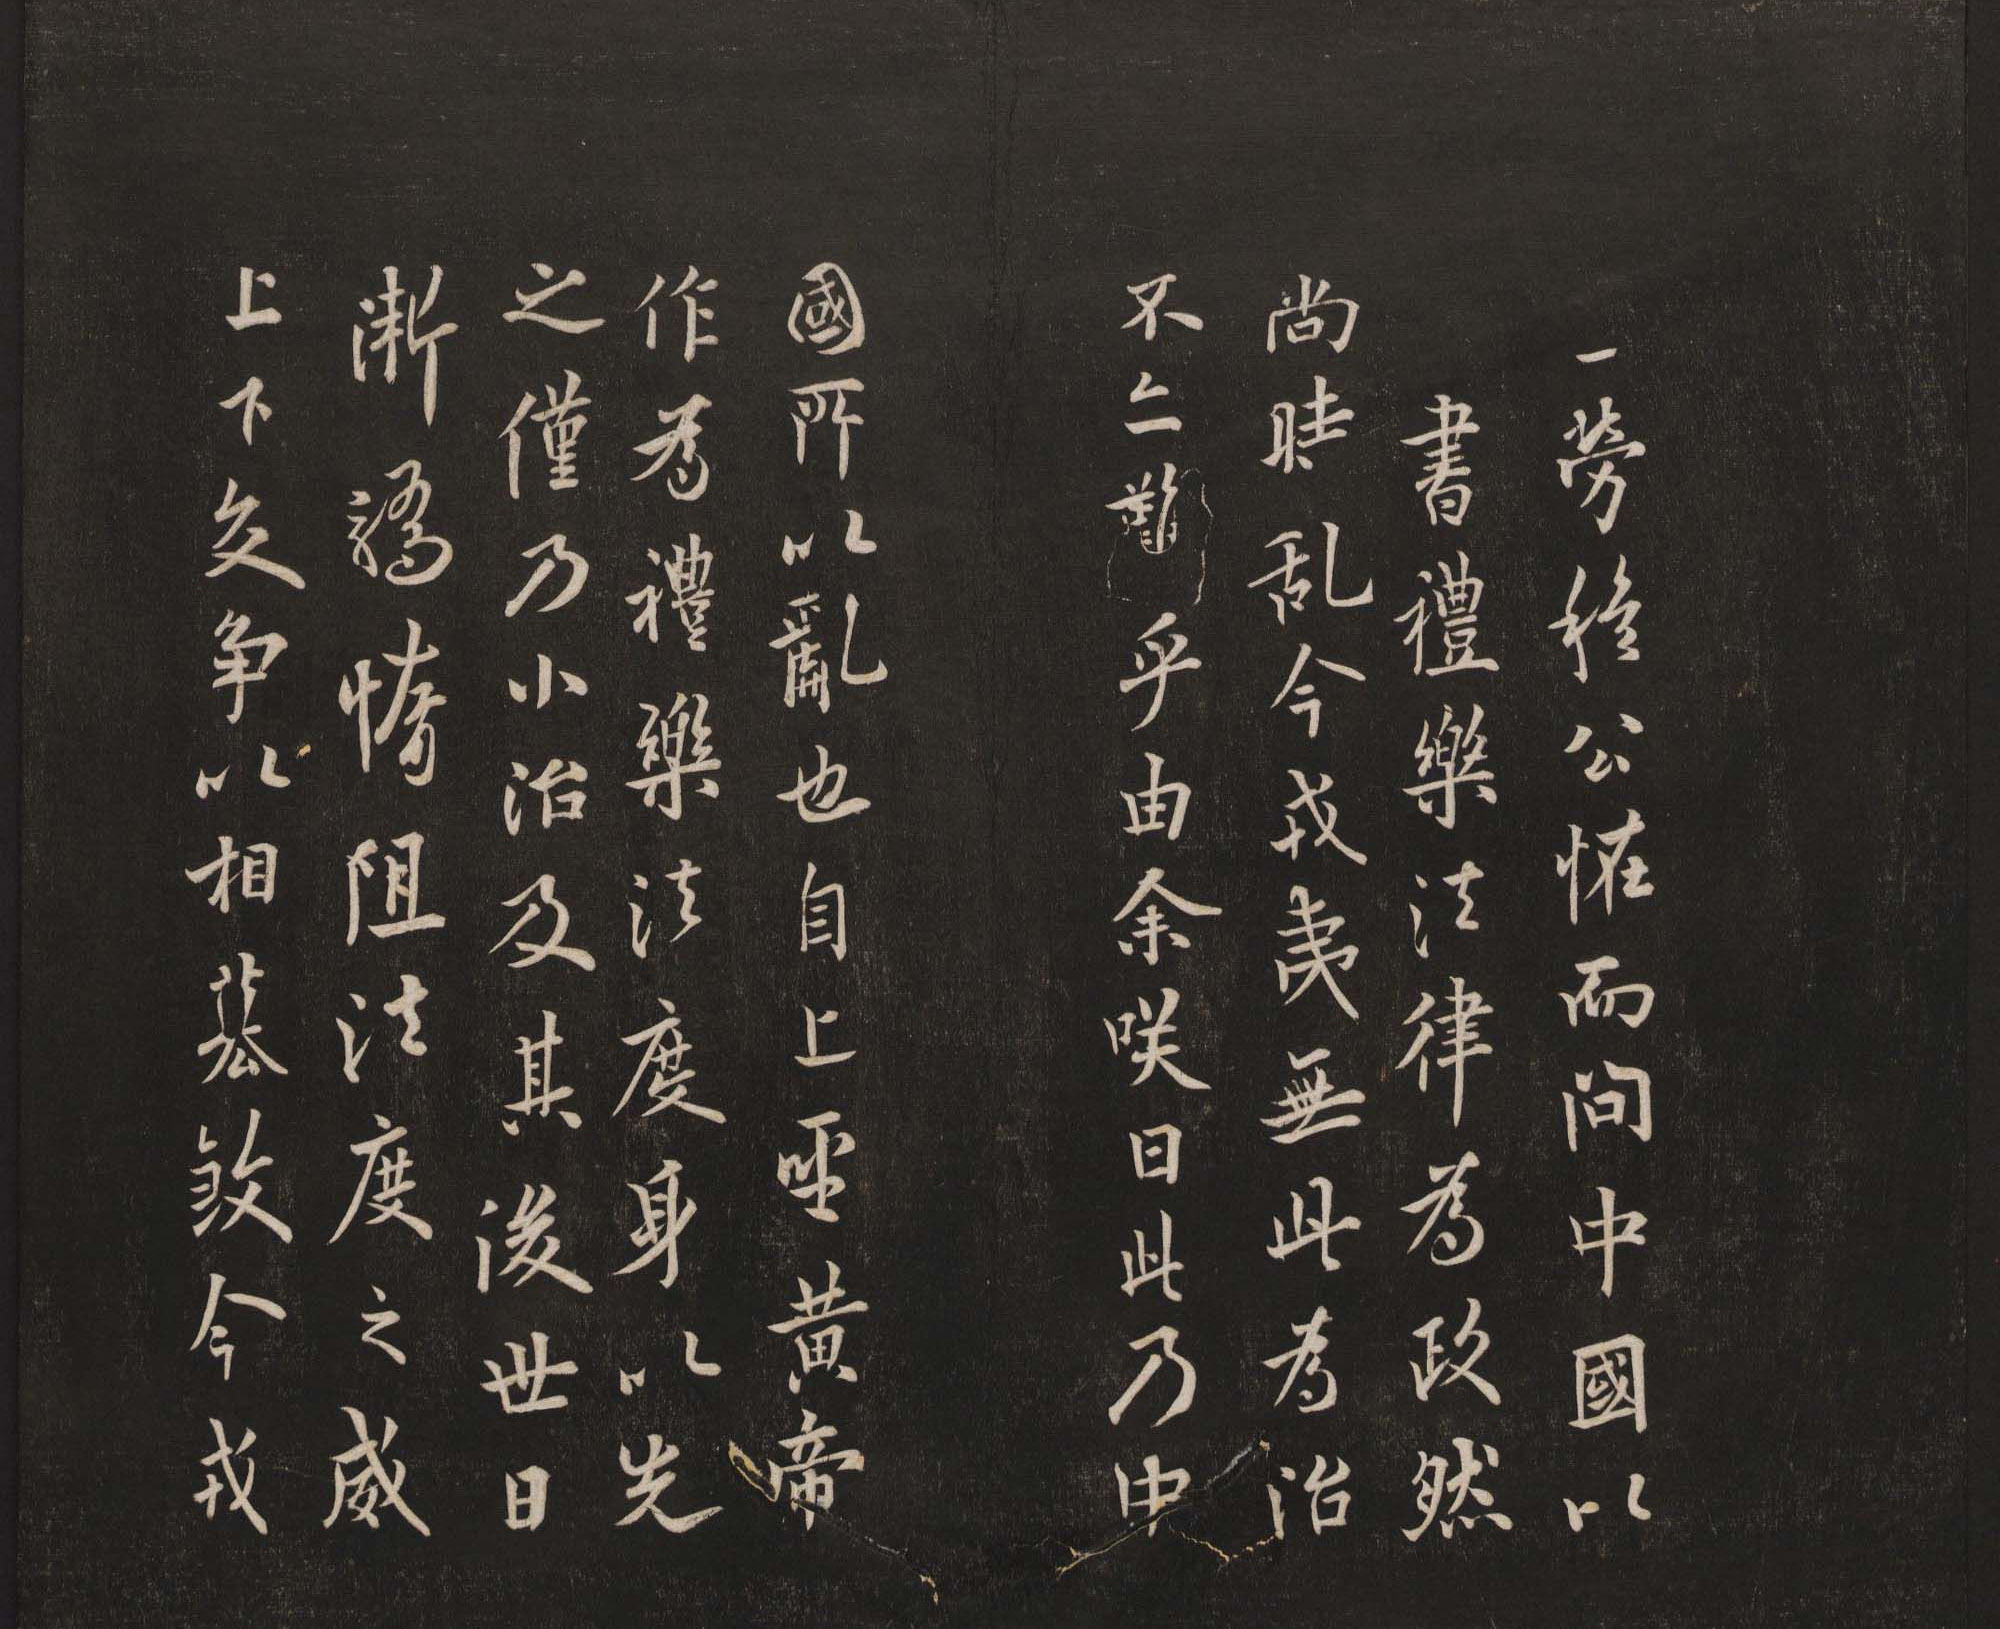 一勞穆公恠而問中國以
書禮樂法律為政然
尚時乱今戎夷無此為治
不亦難乎由余咲曰此乃中
國所以亂也自上聖黃帝
作為禮樂法度身以先
之僅乃小治及其後世日
漸驕惰阻法度之威
上下交争以相篡弒今戎